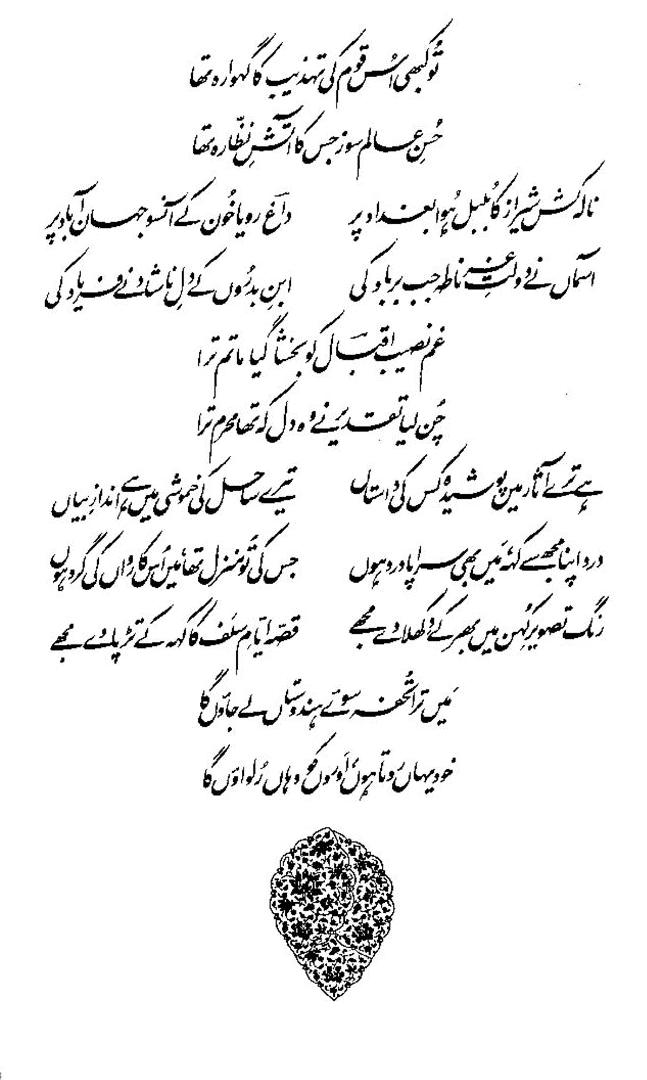 تُو کبھی اُس قوم کی تہذیب کا گہوارہ تھا
حُسنِ عالم سوز جس کا آتشِ نظّارہ تھا
نالہ کش شیراز کا بُلبل ہُوا بغداد پر داغؔ رویا خُون کے آنسو جہان آباد پر
آسماں نے دولتِ غرناطہ جب برباد کی ابنِ بدرُوں کے دلِ ناشاد نے فریاد کی
غم نصیب اقبالؔ کو بخشا گیا ماتم ترا
چُن لیا تقدیر نے وہ دل کہ تھا محرم ترا
ہے ترے آثار میں پوشیدہ کس کی داستاں تیرے ساحل کی خموشی میں ہے اندازِ بیاں
درد اپنا مجھ سے کہہ، مَیں بھی سراپا درد ہوں جس کی تُو منزل تھا، مَیں اُس کارواں کی گرد ہوں
رنگ تصویرِ کُہن میں بھر کے دِکھلا دے مجھے قصّہ ایّامِ سلَف کا کہہ کے تڑپا دے مجھے
مَیں ترا تُحفہ سوئے ہندوستاں لے جاؤں گا
خود یہاں روتا ہوں، اَوروں کو وہاں رُلواؤں گا